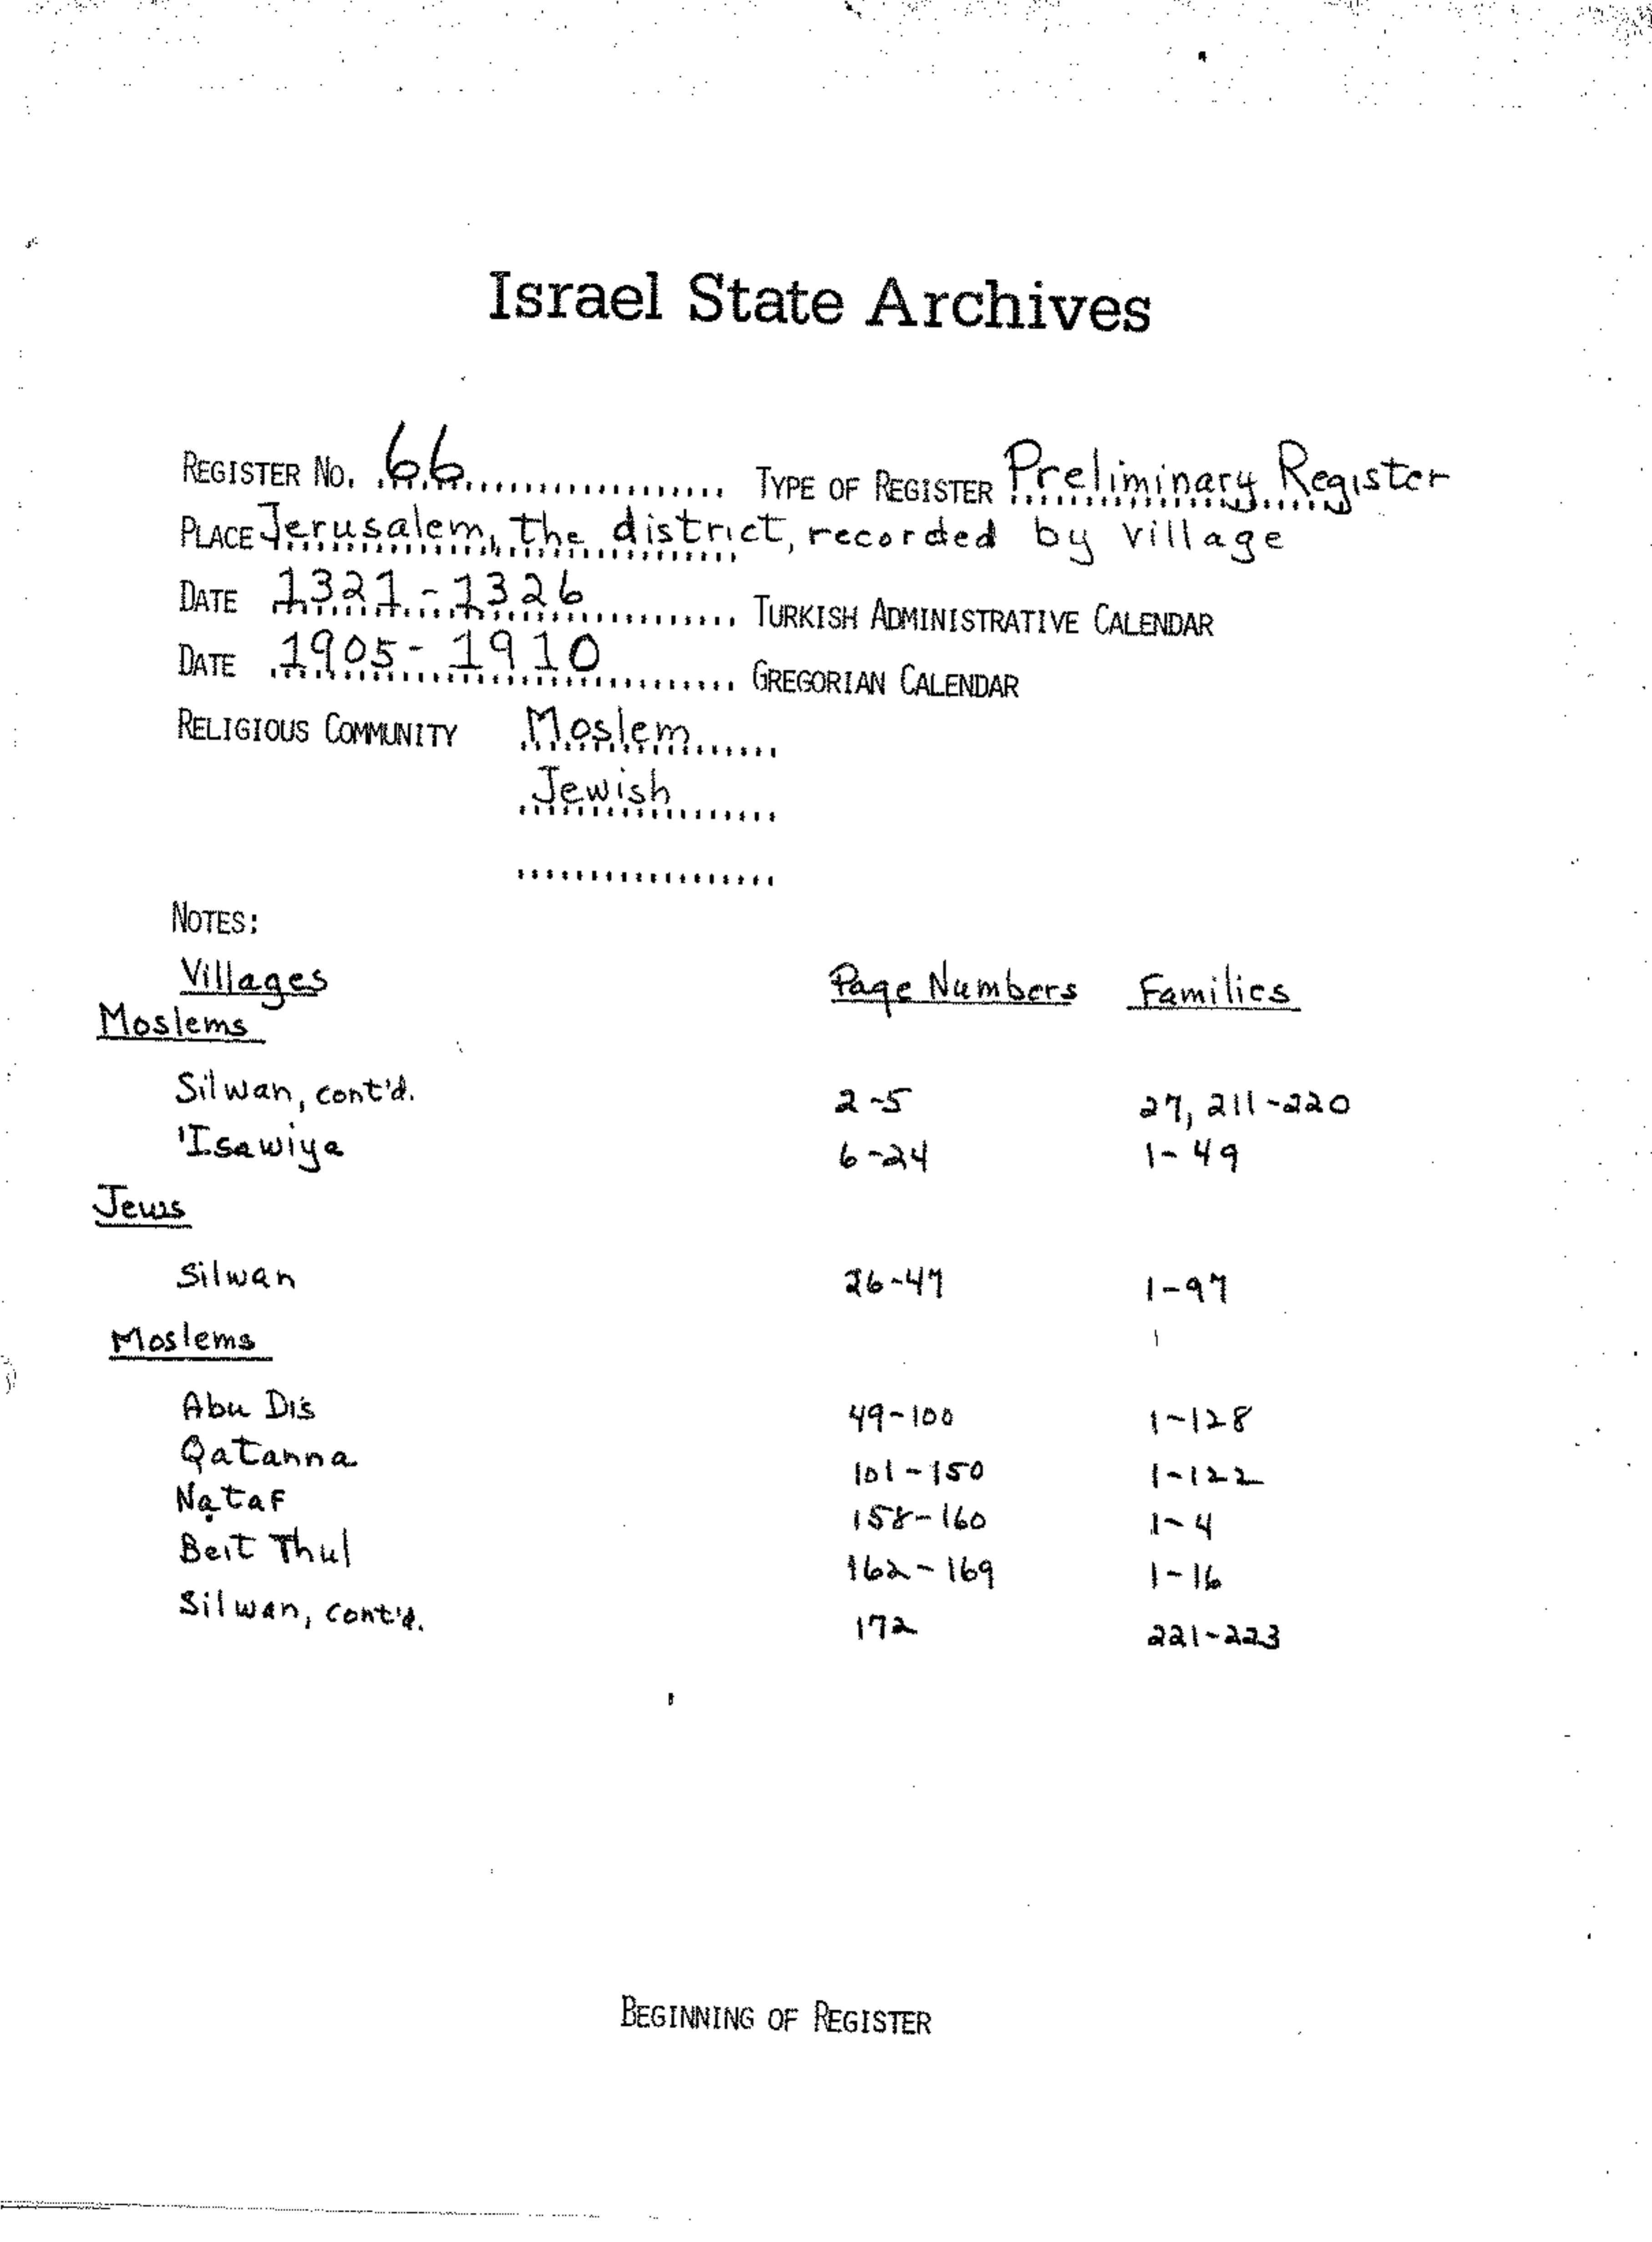 Israel State Archives
REGISTER NO. 66 TYPE OF REGISTER Preliminary Register
PLACE Jerusalem, the district, recorded by village
DATE 1321-1326 TURKISH ADMINISTRATIVE CALENDAR
DATE 1905-1910 GREGORIAN CALENDAR
RELIGIOUS COMMUNITY Moslem
Jewish
NOTES:
Villages Page Numbers Families
Moslems
Silwan, cont'd. 2-5 27, 211-220
'Isawiya 6-24 1-49
Jews
Silwan 26-47 1-97
Moslems
Abu Dis 49-100 1-128
Qatanna 101-150 1-122
Nạtaf 158-160 1-4
Beit Thul 162-169 1-16
Silwan, cont'd. 172 221-223
BEGINNING OF REGISTER